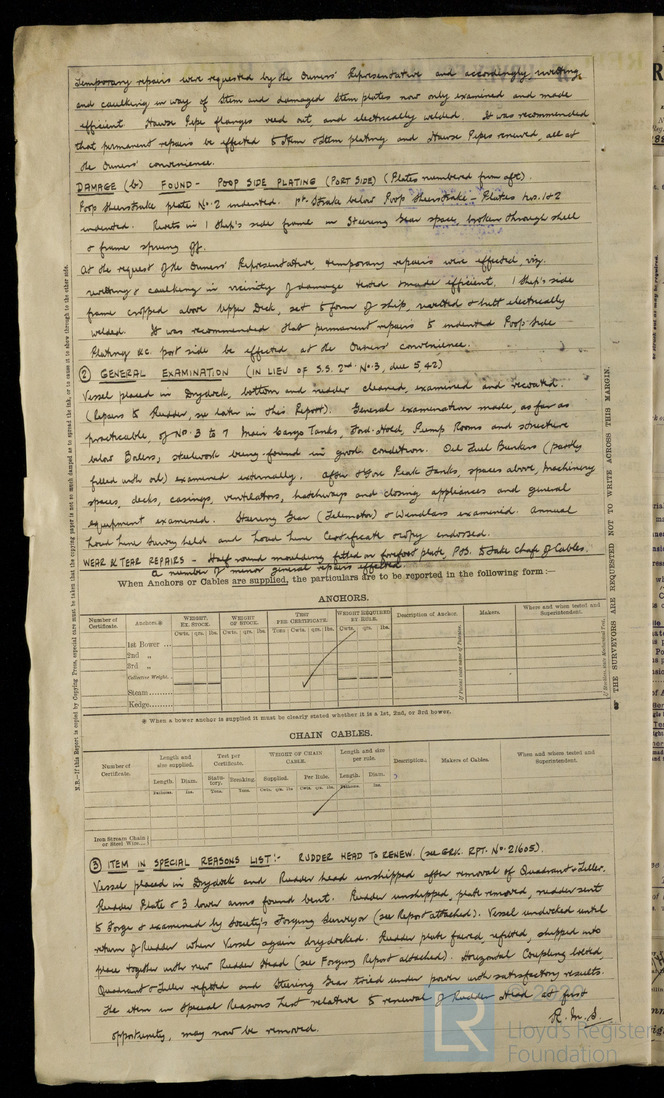 Temporary repairs were requested by the Owners' Representative and accordingly riveting
and caulking in way of Stem and damaged Stem plates now only examined and made
efficient Hawse Pipe flanges veed out and electrically welded. It was recommended
that permanent repairs be effected to Stem & Stem plating and Hawse Pipes renewed, all at
the Owners' convenience.
DAMAGE (b) FOUND - POOP SIDE PLATING (PORT SIDE) (Plates numbered from aft).
Poop Sheerstrake plate No. 2 indented. 1st Strake below Poop Sheerstrake - Plates nos. 1 & 2
indented. Rivets in 1 Ship's side frame in Steering Gear space, broken through shell
& frame sprung off.
At the request of the Owners' Representative, temporary repairs were effected, viz.
riveting & caulking in vicinity of damage tested & made efficient, 1 Ship's side
frame cropped above Upper Deck, set to form of ship, riveted & butt electrically
welded. It was recommended that permanent repairs to indented Poop Side
Plating &c. port side be effected at the Owners' convenience.
(2) GENERAL EXAMINATION (IN LIEU OF S.S. 2nd No. 3, due 5,42)
Vessel placed in Drydock, bottom and rudder cleaned, examined and recoated.
(Repairs to Rudder, see later in this Report). General examination made, as far as
practicable, of No. 3 to 7 Main Cargo Tanks, Ford. Hold, Pump Rooms and structure
below Boilers, steelwork being found in good condition. Oil Fuel Bunkers (partly
filled with oil) examined externally. After & Fore Peak Tanks, spaces above, Machinery
spaces, decks, casings, ventilators, hatchways and closing appliances and general
equipment examined. Steering Gear (Telemotor) & Windlass examined. Annual
Load Line Survey held and Load Line Certificate copy endorsed.
WEAR & TEAR REPAIRS - Half round moulding fitted on forefoot plate, P&S. to take chafe of Cables.
A number of minor general repairs effected.
When Anchors or Cables are supplied, the particulars are to be reported in the following form:—
ANCHORS.
Number of Certificate. Anchors.* WEIGHT. EX. STOCK. WEIGHT OF STOCK. TEST PER CERTIFICATE. WEIGHT REQUIRED BY RULE. Description of Anchor. Makers. Where and when tested and Superintendent.
Cwts. qrs. lbs. Cwts. qrs. lbs. Tons Cwts. qrs. lbs. Cwts. qrs. lbs.
1st Bower ...
2nd „
3rd „
Collective Weight.
Stream
Kedge
* When a bower anchor is supplied it must be clearly stated whether it is a 1st, 2nd, or 3rd bower.
CHAIN CABLES.
Number of Certificate. Length and size supplied. Test per Certificate. WEIGHT OF CHAIN CABLE. Length and size per rule. Description. Makers of Cables. When and where tested and Superintendent.
Length. Diam. Statutory. Breaking. Supplied. Per Rule. Length. Diam.
Fathoms. Ins. Tons. Tons. Cwts. qrs. lbs. Cwts. qrs. lbs. Fathoms. Ins.
Iron Stream Chain or Steel Wire
(3) ITEM IN SPECIAL REASONS LIST:- RUDDER HEAD TO RENEW. (see GRK. RPT. No. 21605).
Vessel placed in Drydock and Rudder head unshipped after removal of Quadrant & Tiller.
Rudder Plate & 3 lower arms found bent. Rudder unshipped, plate removed, rudder sent
to Forge & examined by Society's Forging Surveyor (see Report attached). Vessel undocked until
return of Rudder when Vessel again drydocked. Rudder plate faired, refitted, shipped into
place together with new Rudder Head (see Forging Report attached). Horizontal Coupling bolted,
Quadrant & Tiller refitted and Steering Gear tried under power with satisfactory results.
The item in Special Reasons List relative to renewal of Rudder Head at first
opportunity, may now be removed.
R. M. S.
N.B.—If this Report is copied by Copying Press, special care must be taken that the copying paper is not so much damped as to spread the ink, or to cause it to show through to the other side.
THE SURVEYORS ARE REQUESTED NOT TO WRITE ACROSS THIS MARGIN.
LR
© 2020
Lloyd's Register
Foundation